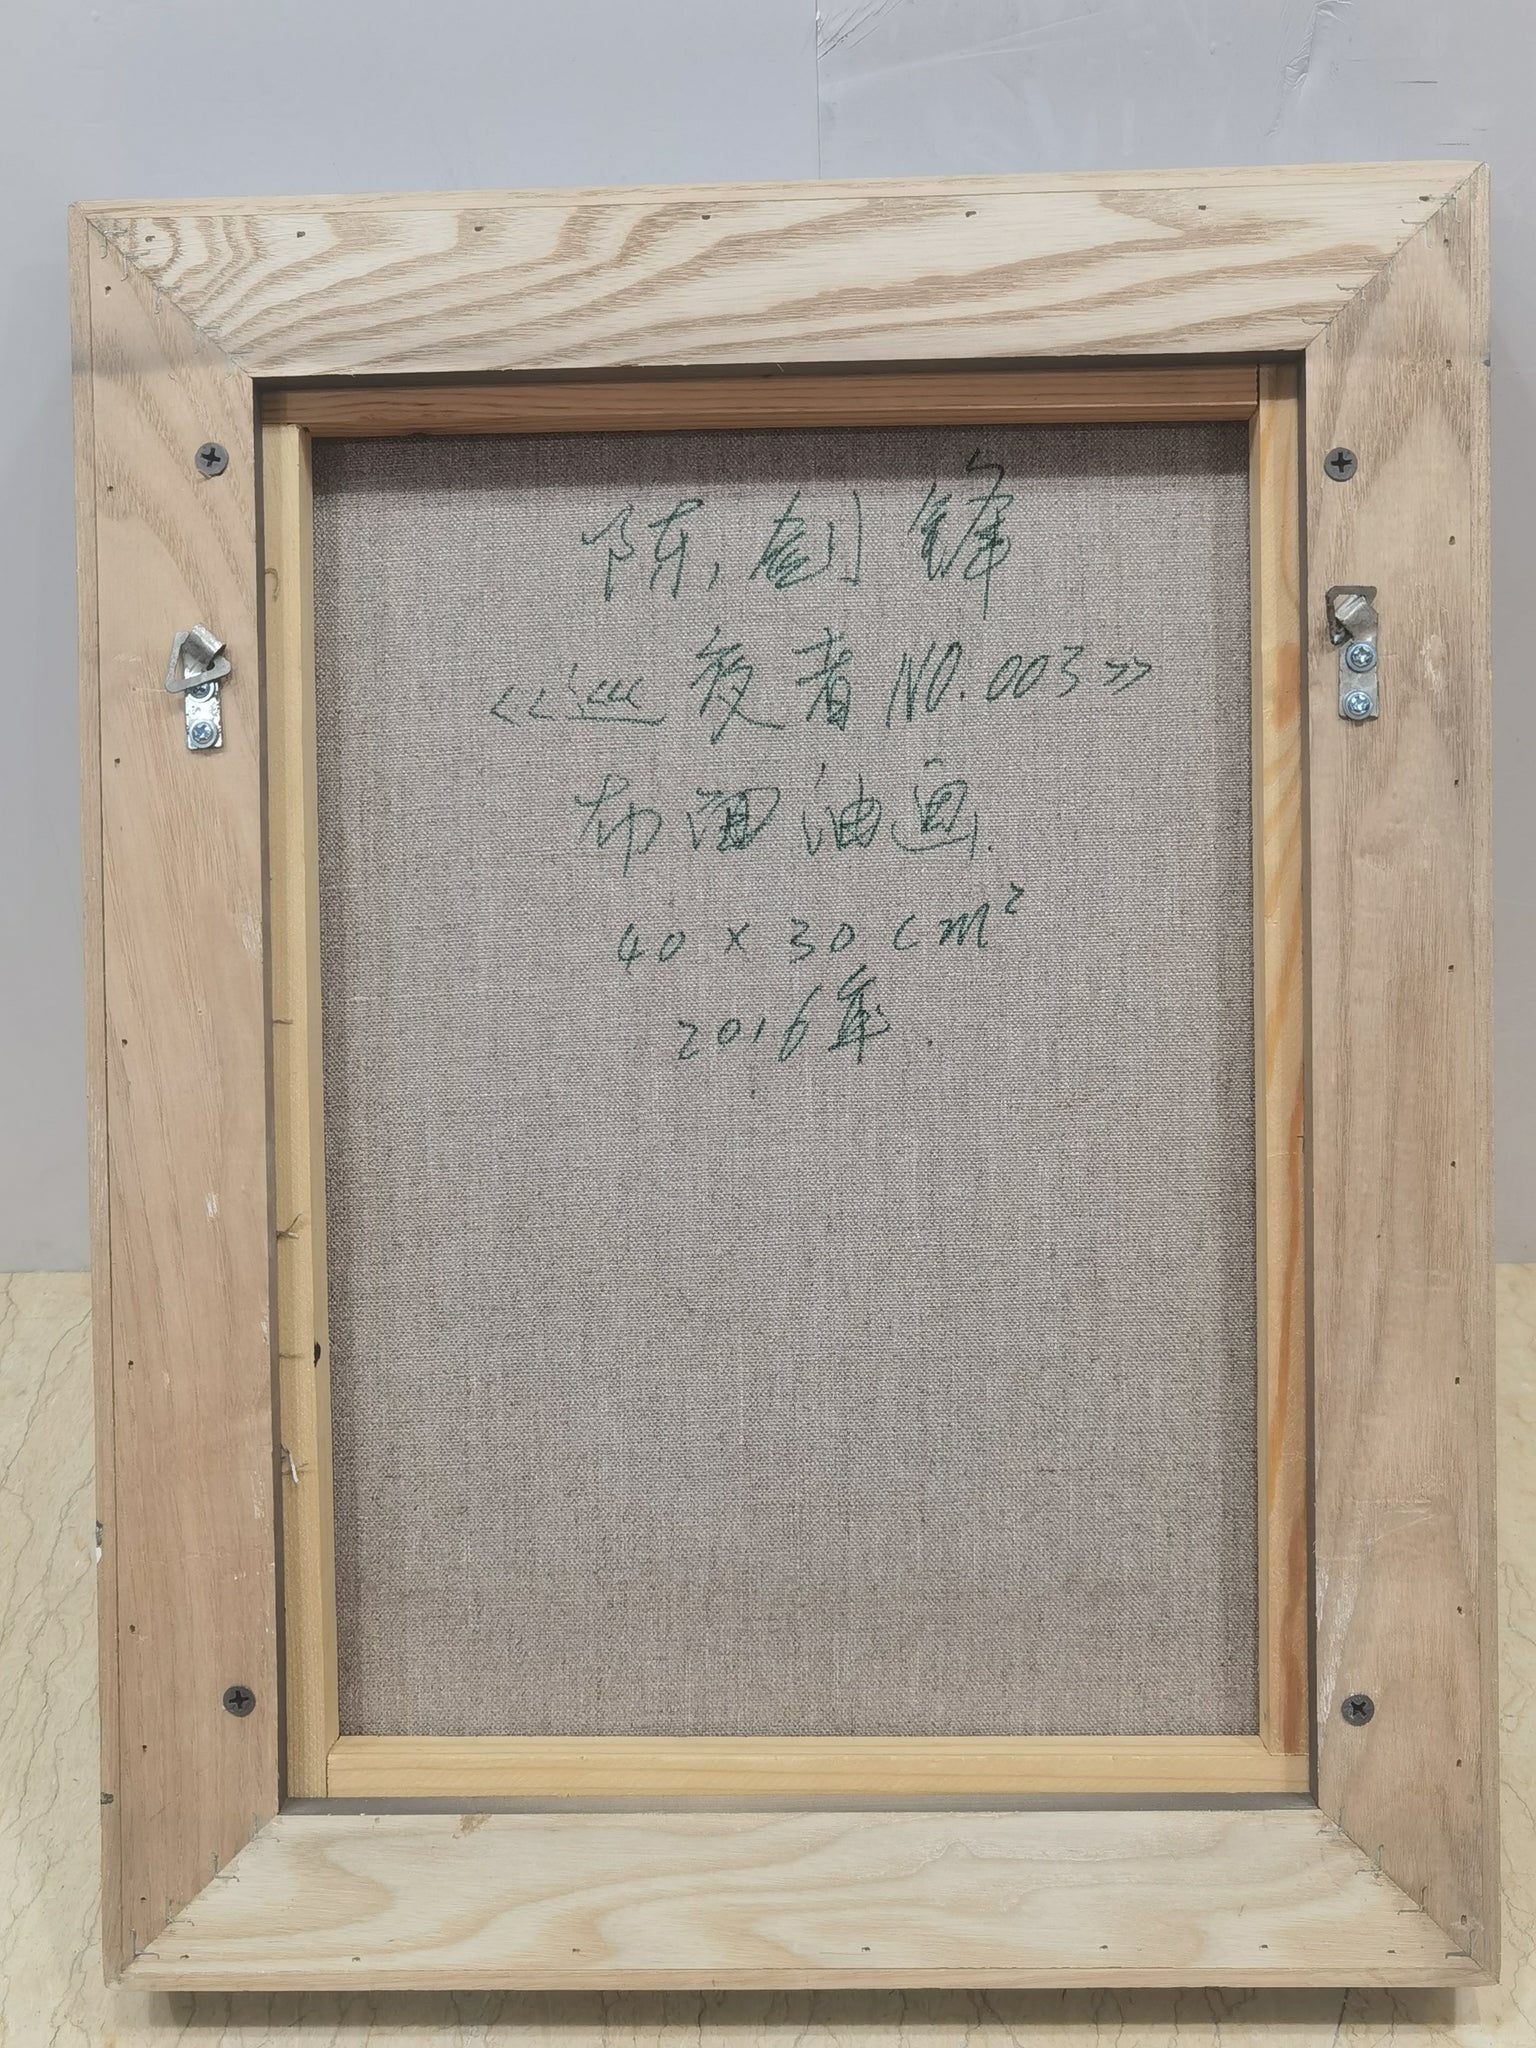 陈剑锋
《巡夜者NO.003》
布面油画
40×30cm²
2016年.